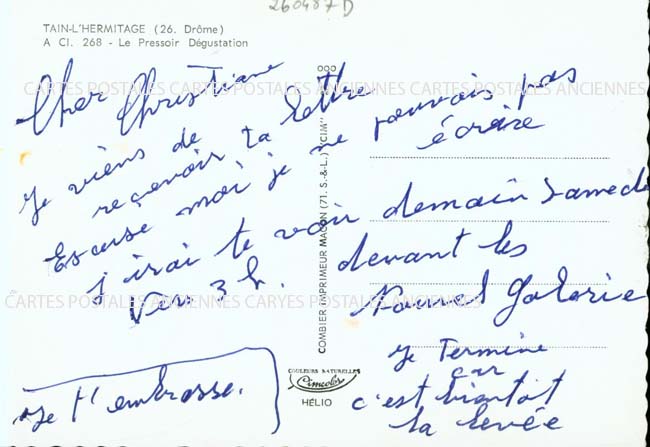 260487D
TAIN-L'HERMITAGE (26. Drôme)
A CI. 268 - Le Pressoir Dégustation
Cher Christiane
CARTES POSTALES ANCIENNES CARTES POSTALES ANCIENNES CARTES POSTALES ANCIENNES
Je viens de
recevoir ta lettre
Escuse moi je ne pouvais pas
écrire
j'irai te voir demain Samedi
Vers 3 h. devant les
CARTES POSTALES ANCIENNES CARYES POSTALES ANCIENNES CARTES POSTALES ANCIENNES
Nouvel Galerie
Je Termine
car
c'est bientot
la levée
Je t'embrasse.
COMBIER IMPRIMEUR MACON (71. S.-&-L.) "CIM"
COULEURS NATURELLES
Cimcolor
HÉLIO